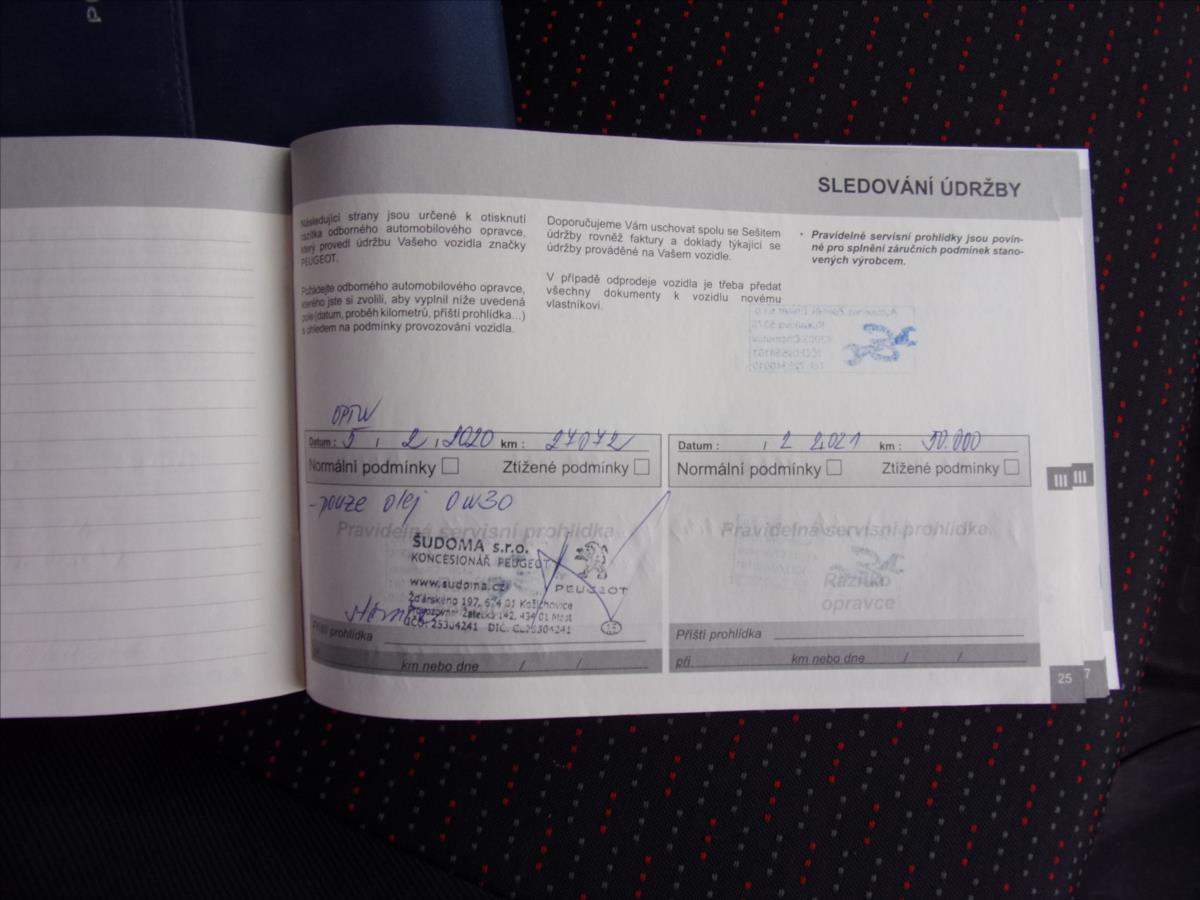 SLEDOVÁNÍ ÚDRŽBY
Následující strany jsou určené k otisknutí
razítka odborného automobilového opravce,
který provedl údržbu Vašeho vozidla značky
PEUGEOT.
Požádejte odborného automobilového opravce,
kterého jste si zvolili, aby vyplnil níže uvedená
pole (datum, proběh kilometrů, příští prohlídka...)
s ohledem na podmínky provozování vozidla.
Doporučujeme Vám uschovat spolu se Sešitem
údržby rovněž faktury a doklady týkající se
údržby prováděné na Vašem vozidle.
V případě odprodeje vozidla je třeba předat
všechny dokumenty k vozidlu novému
vlastníkovi.
• Pravidelné servisní prohlídky jsou povin-
né pro splnění záručních podmínek stano-
vených výrobcem.
Datum : 5 / 2 / 2020 km : 27072
Normální podmínky Ztížené podmínky
- pouze olej 0W30
Pravidelná servisní prohlídka
ŠUDOMA s.r.o.
KONCESIONÁŘ PEUGEOT
www.sudoma.cz
PEUGEOT
Žďárského 197, 674 01 Kožichovice
Provozovna: Žatecká 142, 434 01 Most
IČO: 25304241 DIČ: CZ25304241
15
Příští prohlídka
km nebo dne / /
Datum : / 2 2021 km : 50.000
Normální podmínky Ztížené podmínky
Pravidelná servisní prohlídka
Razítko
opravce
Příští prohlídka
při km nebo dne / /
III III
25 7